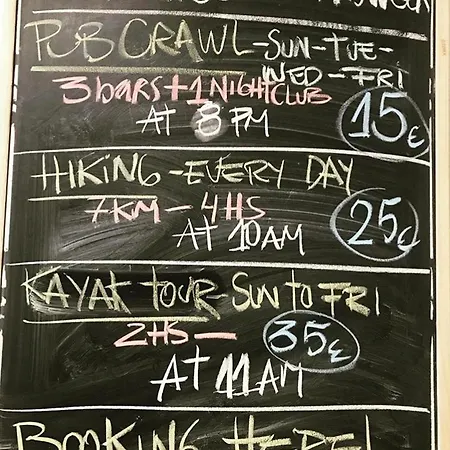 PUB CRAWL-SUN-TUE-
WED-FRI
3 bars + 1 NIGHTCLUB
AT 8 PM
15€
HIKING-EVERY DAY
7KM - 4HS
AT 10AM
25€
KAYAK TOUR-SUN TO FRI
2HS - 35€
AT 11AM
BOOKING HERE!